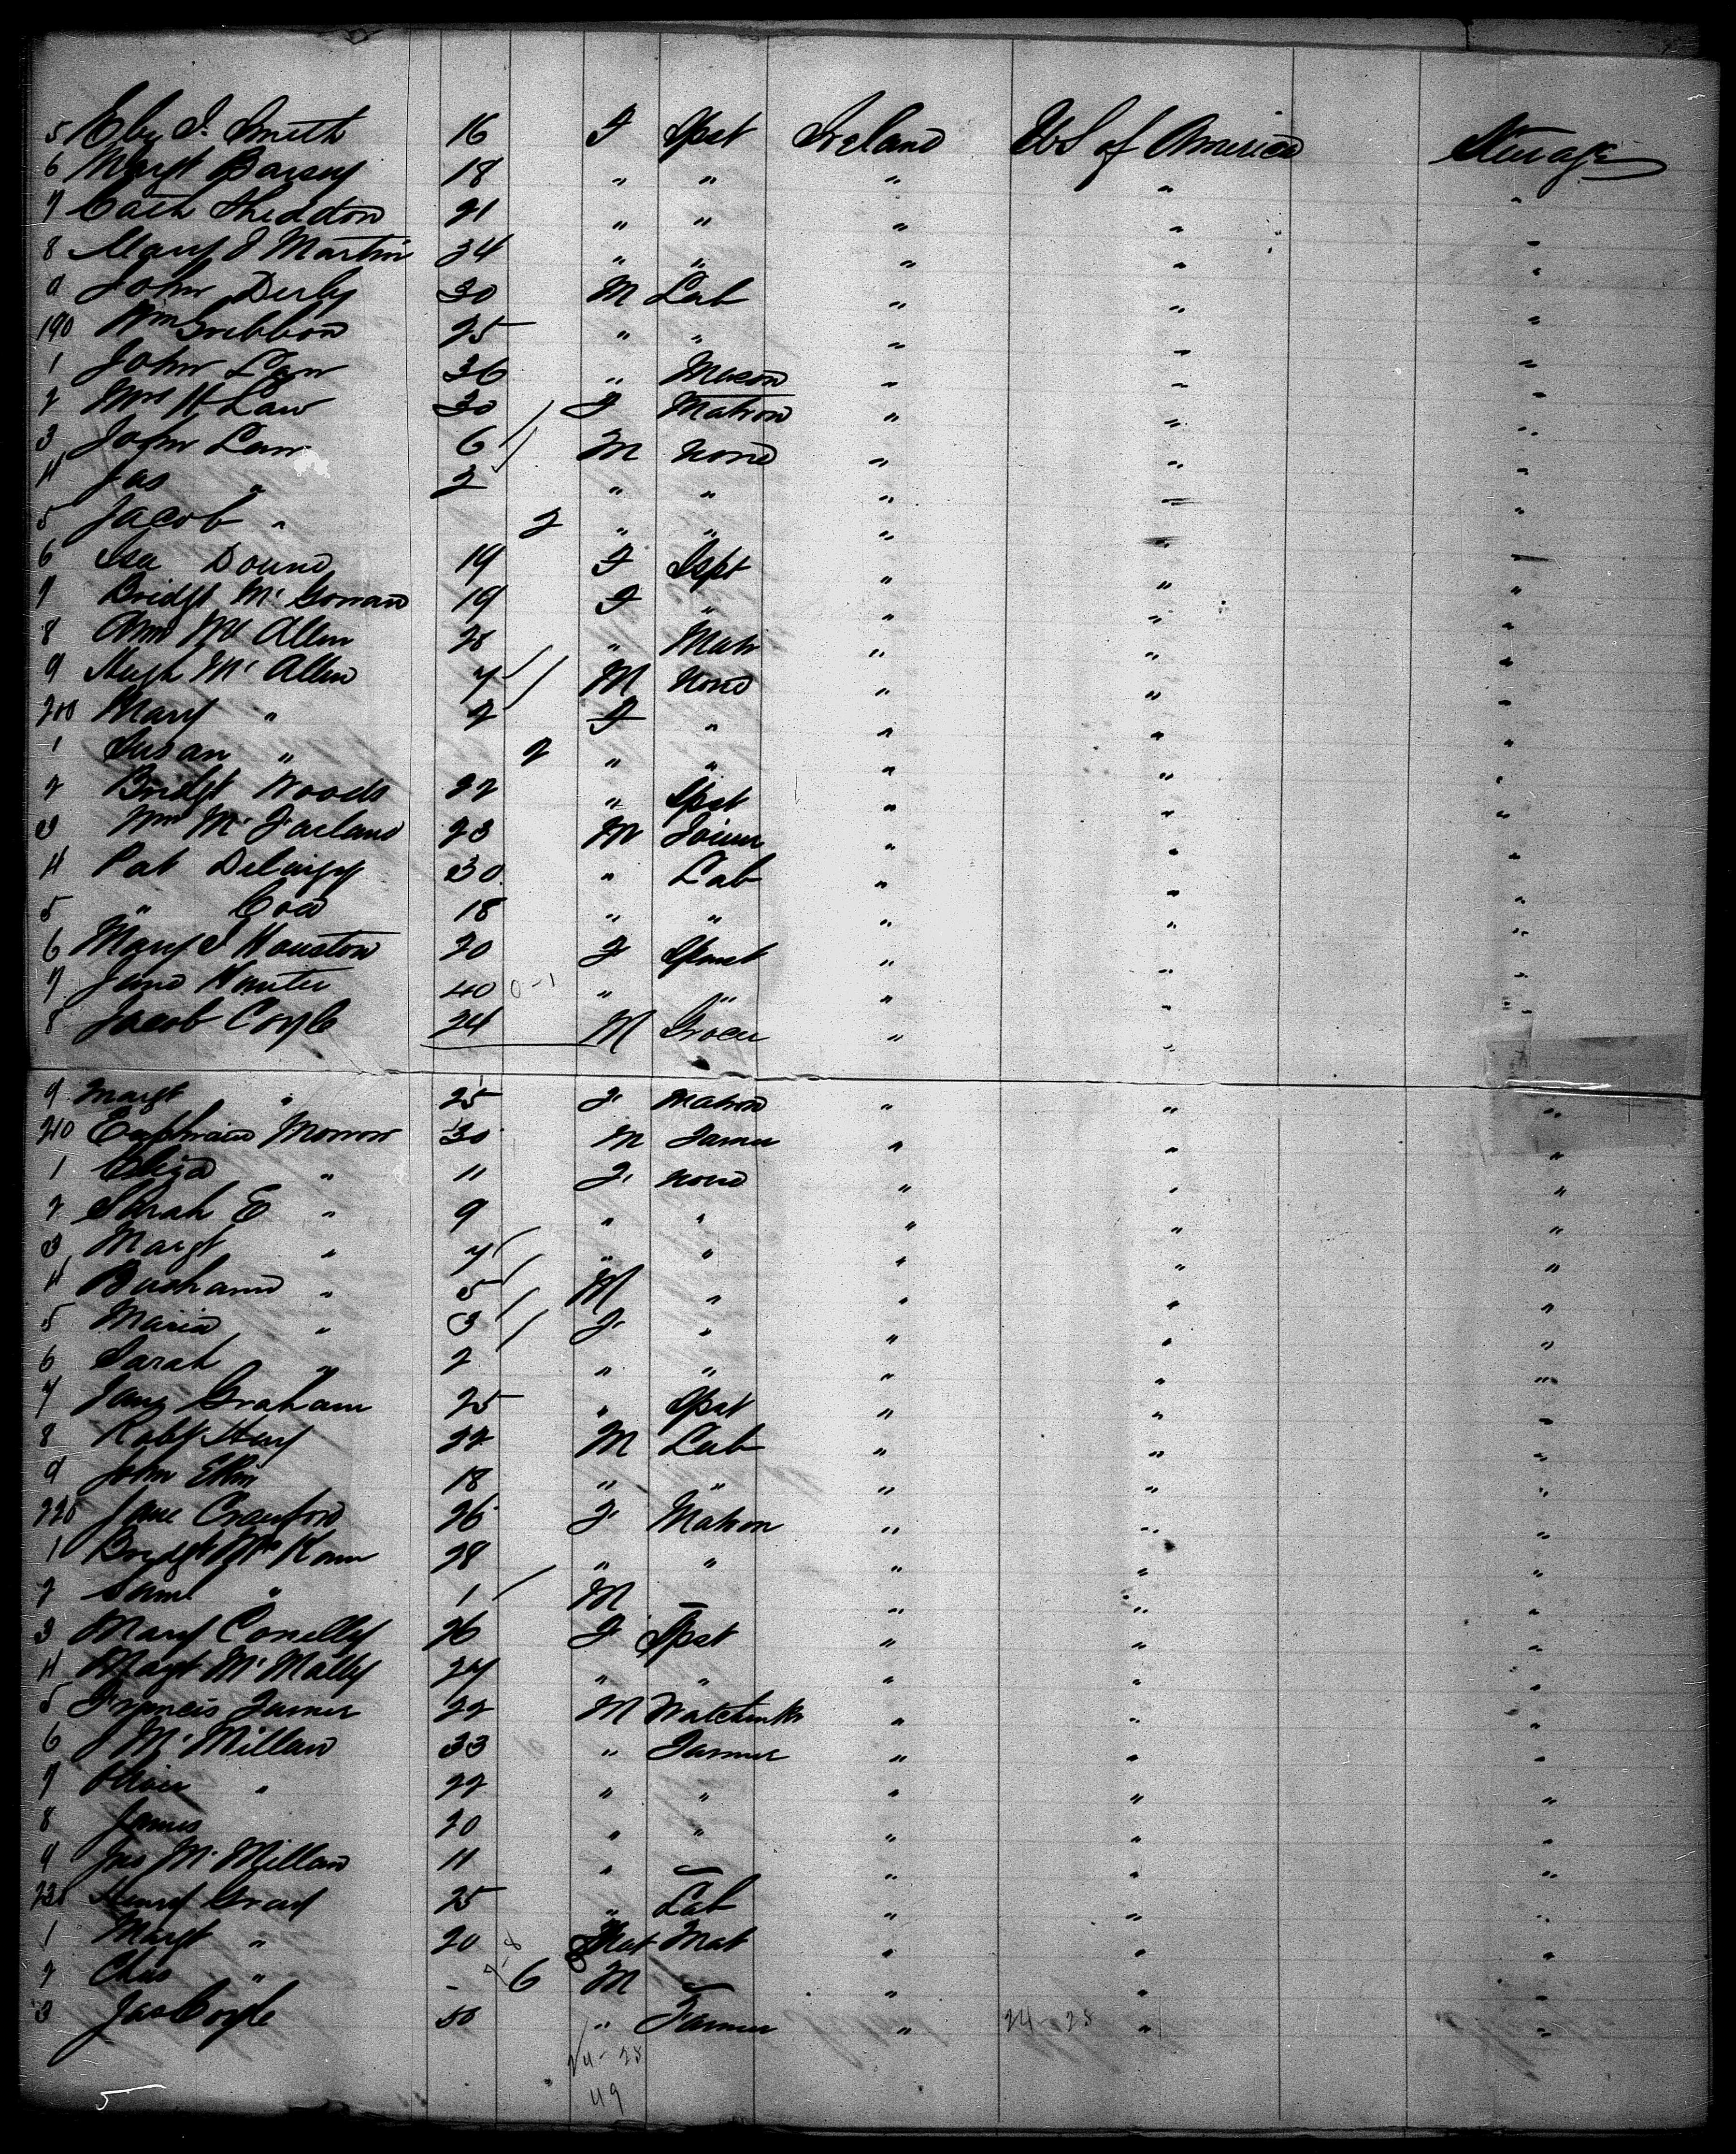 5 Eby J. Smith 16 F Spst Ireland U S of America Steerage
6 Margt 18 " " " " "
7 Cath 21 " " " " "
8 Mary J Martin 34 " " " " "
9 John Derby 30 M Lab " " "
190 Wm Gribbon 25 " " " " "
1 John Law 36 " Mason " " "
2 Mrs H Law 30 F Matron " " "
3 John Law 6 M None " " "
4 Jas " 2 " " " " "
5 Jacob " 2 " " " " "
6 19 F Spst " " "
7 Bridgt Mc Gorran 19 F " " " "
8 Ann Mc Allen 28 " Matr " " "
9 Hugh Mc Allen 7 M None " " "
200 Mary " 2 F " " " "
1 Susan " 2 " " " " "
2 Bridgt Woods 22 " Spst " " "
3 Wm Mc Farland 23 M Joiner " " "
4 Pat 30 " Lab " " "
5 " 18 " " " " "
6 Mary J Houston 20 F Spinst " " "
7 Jane Hunter 40 0-1 " " " " "
8 Jacob Coyle 24 M Grocer " " "
9 Margt " 25 F Matron " " "
210 Ephraim Morrow 30 M Farmer " " "
1 Eliza " 11 F None " " "
2 Sarah E " 9 " " " " "
3 Margt " 7 " " " " "
4 " 5 M " " " "
5 Maria " 3 F " " " "
6 Sarah " 2 " " " " "
7 Jane Graham 25 " Spst " " "
8 Robt Hay 22 M Lab " " "
9 John Elkin 18 " " " " "
220 Jane Crawford 26 F Matron " " "
1 Bridgt Mc Kann 28 " " " " "
2 Saml " 1 M — " " "
3 Mary Conelly 26 F Spst " " "
4 Margt Mc Mally 27 " " " " "
5 Francis Turner 22 M Watchmkr " " "
6 J Mc Millan 33 " Farmer " " "
7 " 22 " " " " "
8 James 20 " " " " "
9 Jno Mc Millan 11 " — " " "
230 Henry Gray 25 " Lab " " "
1 Margt " 20 Mat " " "
2 Chas " - 6 M — " " "
3 Jas Coyle 50 " Farmer " 24-25 " "
24-25
49
5